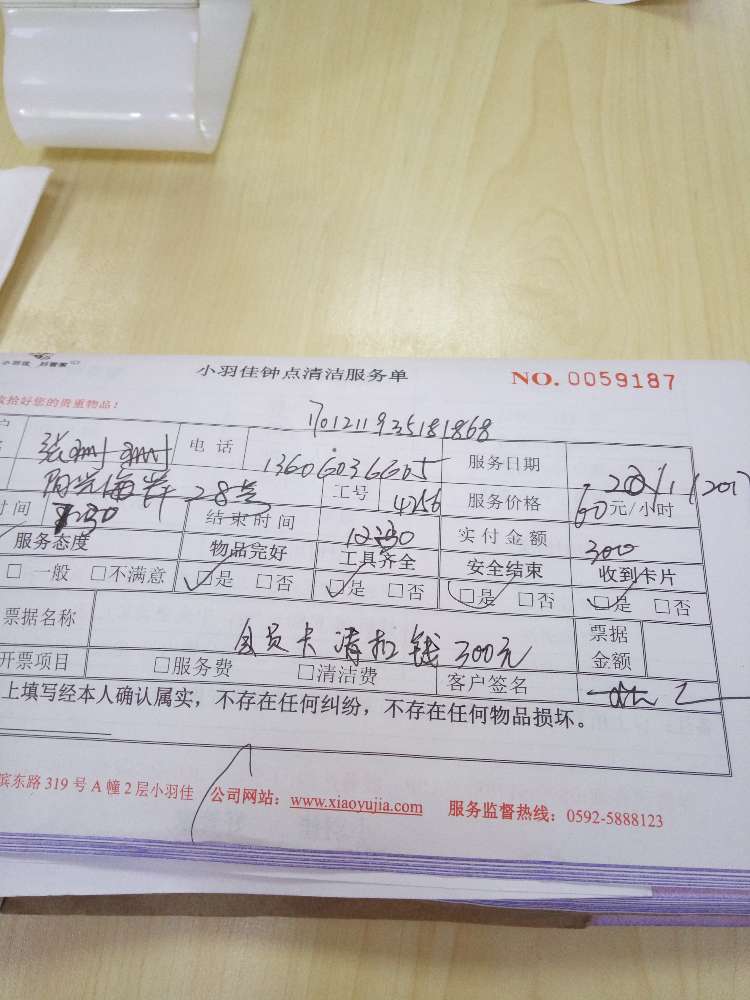 小羽佳 好管家
小羽佳钟点清洁服务单 NO. 0059187
收拾好您的贵重物品！
17012119 35181868
户 张 电话 13606036605 服务日期
阳光海岸28号 工号 4256 服务价格 60元/小时
时间 结束时间 12:30 实付金额 300
服务态度 物品完好 工具齐全 安全结束 收到卡片
□一般 □不满意 □是 □否 □是 □否 □是 □否 □是 □否
票据名称 会员卡请扣钱300元 票据金额
开票项目 □服务费 □清洁费 客户签名
上填写经本人确认属实，不存在任何纠纷，不存在任何物品损坏。
滨东路319号A幢2层小羽佳 公司网站：www.xiaoyujia.com 服务监督热线：0592-5888123